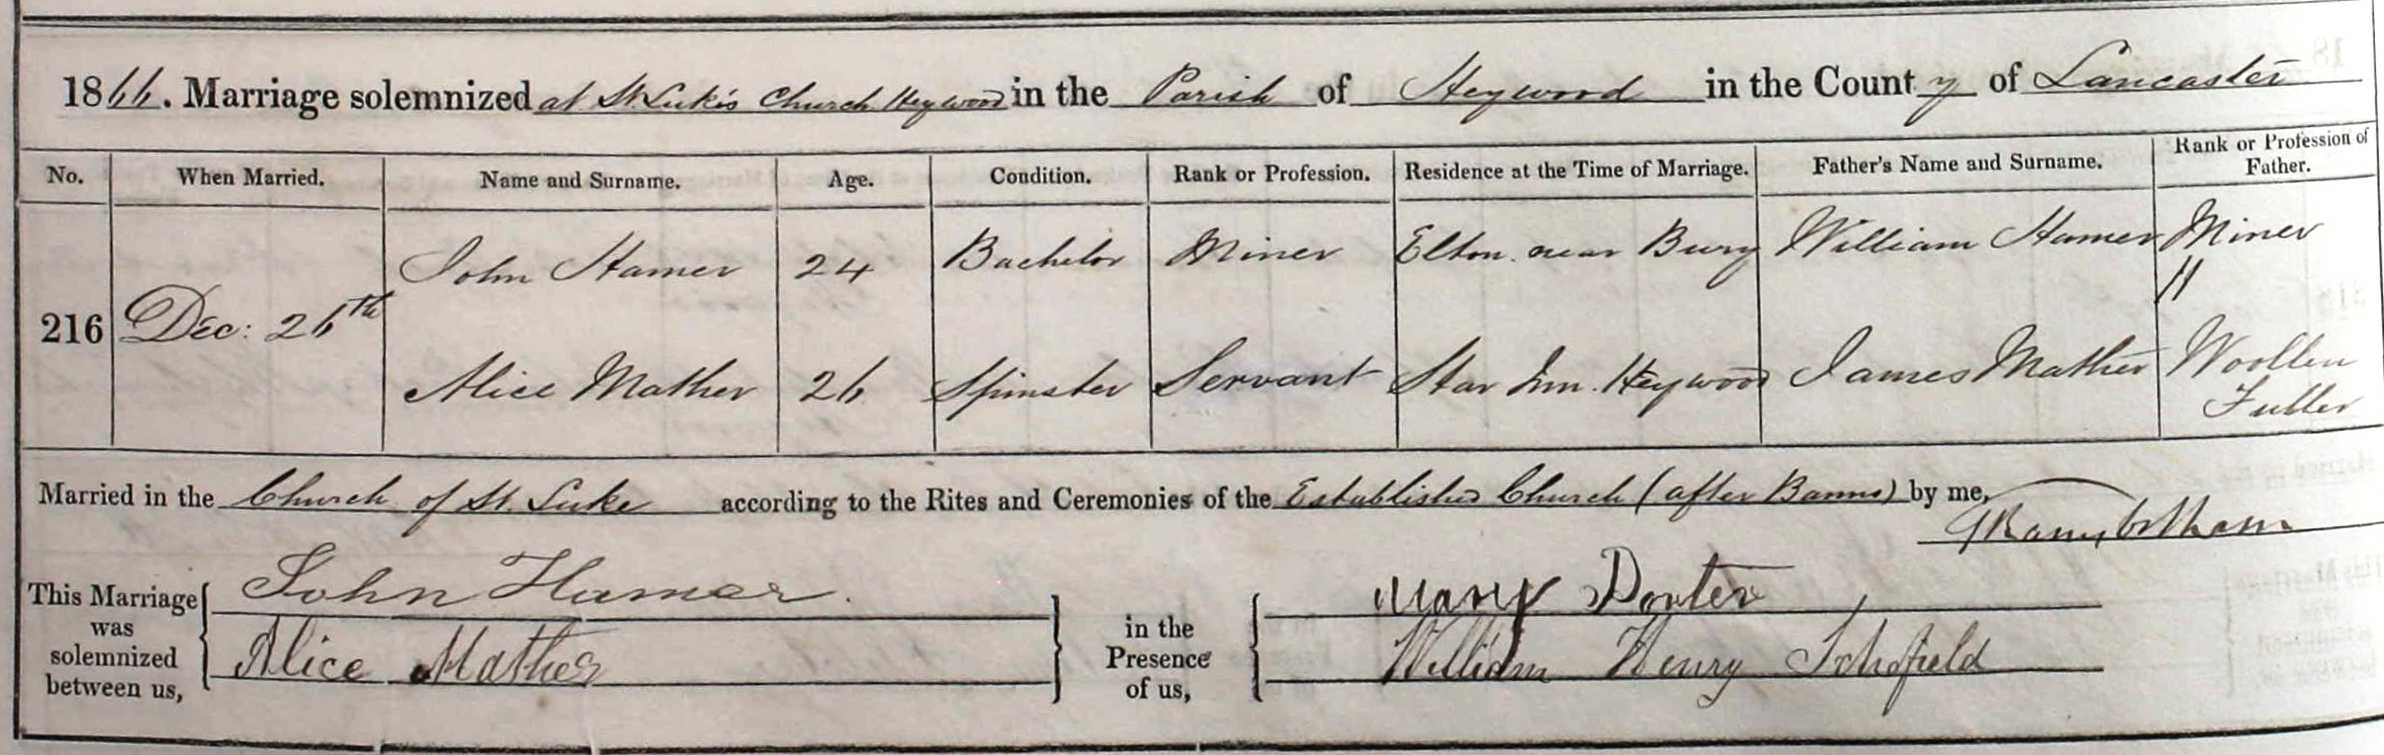 1866. Marriage solemnized at St. Luke's Church Heywood in the Parish of Heywood in the County of Lancaster
No. When Married. Name and Surname. Age. Condition. Rank or Profession. Residence at the Time of Marriage. Father's Name and Surname. Rank or Profession of Father.
John Hamer 24 Bachelor Miner Elton near Bury William Hamer Miner
216 Dec: 26th "
Alice Mather 26 Spinster Servant Star Inn. Heywood James Mather Woollen
Fuller
Married in the Church of St. Luke according to the Rites and Ceremonies of the Established Church (after Banns) by me,
This Marriage was solemnized between us, John Hamer. Alice Mather
in the Presence of us, Mary
William Henry Schofield